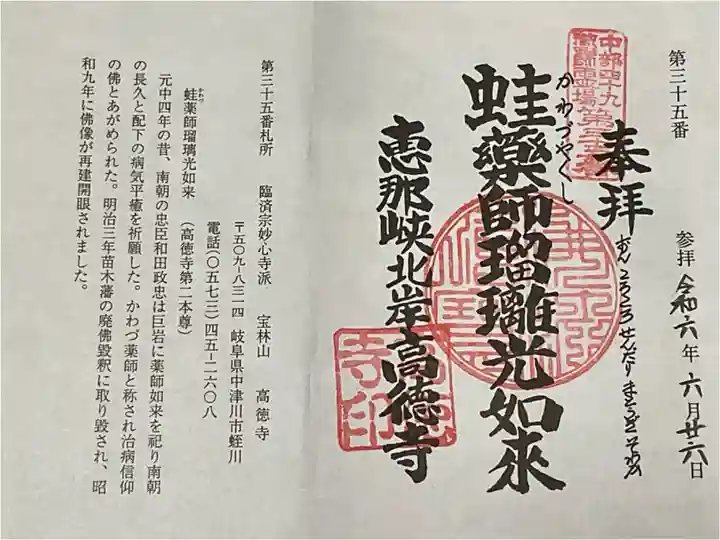 第三十五番
参拝 令和六年六月廿六日
奉拝
おん ころころ せんだり まとうぎ そわか
中部四十九
薬師霊場第三十五番
かわづやくし
蛙藥師瑠璃光如来
恵那峡北岸高徳寺
寺印
第三十五番札所 臨済宗妙心寺派 宝林山 高徳寺
〒五〇九-八三一四 岐阜県中津川市蛭川
電話(〇五七三)四五-二六〇八
かわづ
蛙薬師瑠璃光如来 (高徳寺第二本尊)
元中四年の昔、南朝の忠臣和田政忠は巨岩に薬師如来を祀り南朝
の長久と配下の病気平癒を祈願した。かわづ薬師と称され治病信仰
の佛とあがめられた。明治三年苗木藩の廃佛毀釈に取り毀され、昭
和九年に佛像が再建開眼されました。